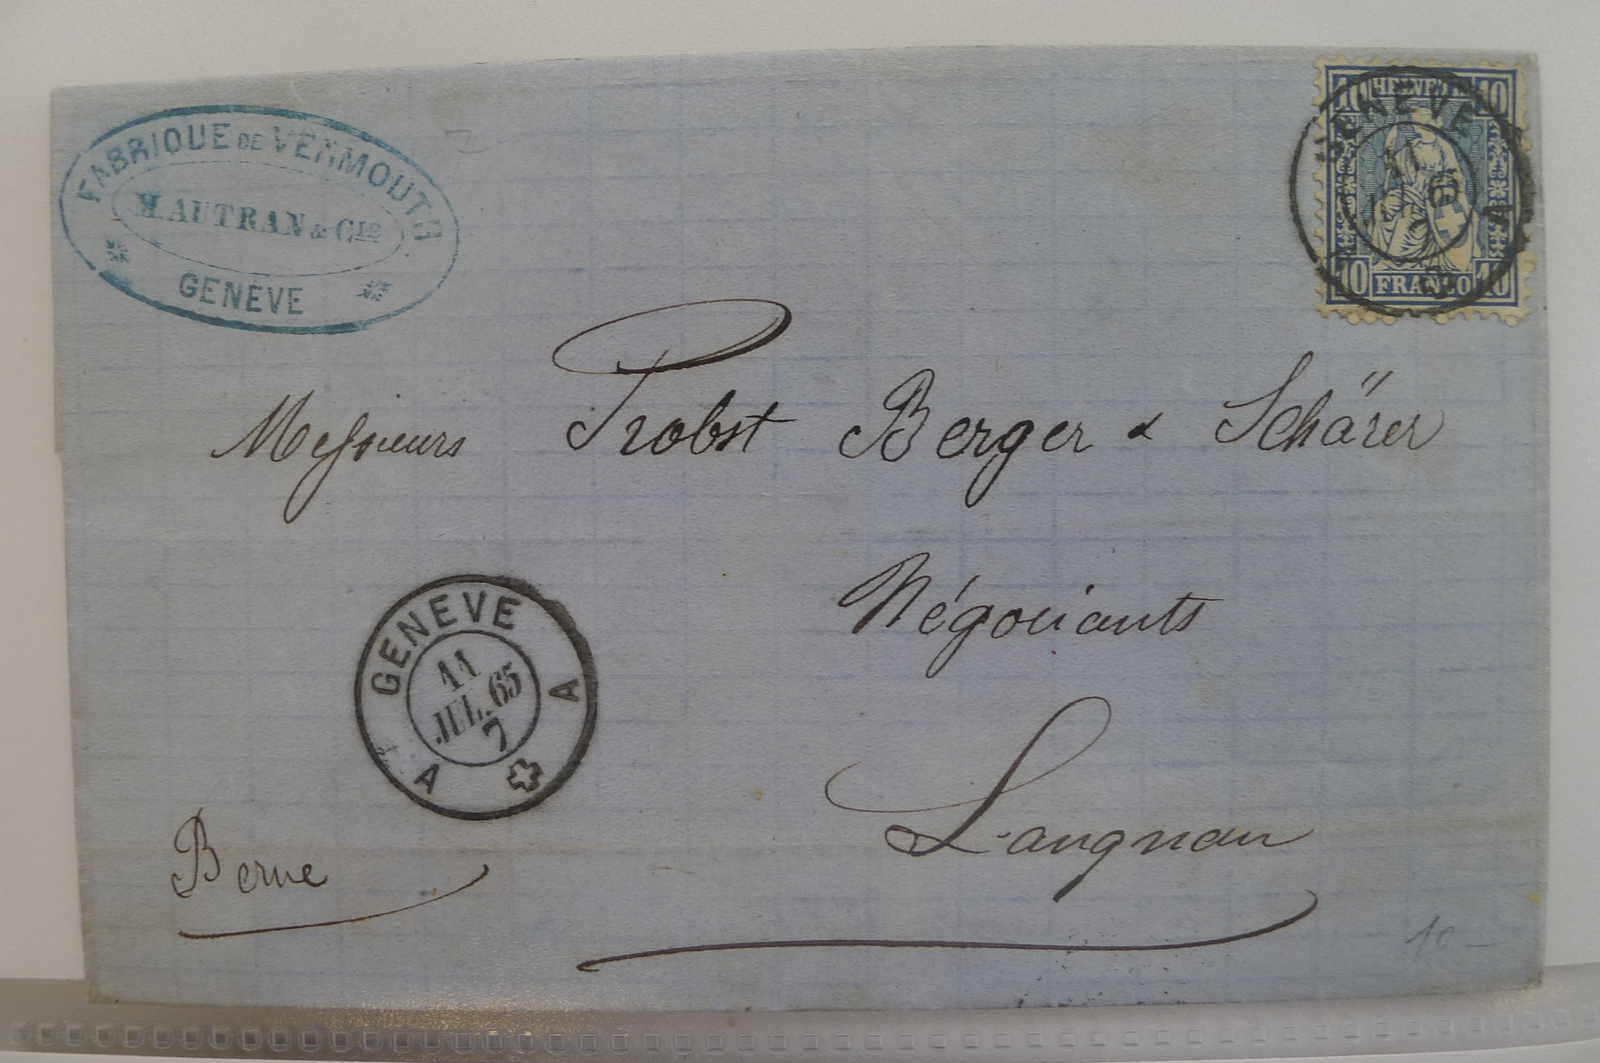 FABRIQUE DE VERMOUTS
H. AUTRAN & Cie
GENÈVE
10 HELVETIA 10
GENÈVE
10 FRANCO 10
Messieurs Probst Berger & Schärer
Négociants
Langnau
GENEVE
11
JUL. 65
7
A A
Berne
10 –